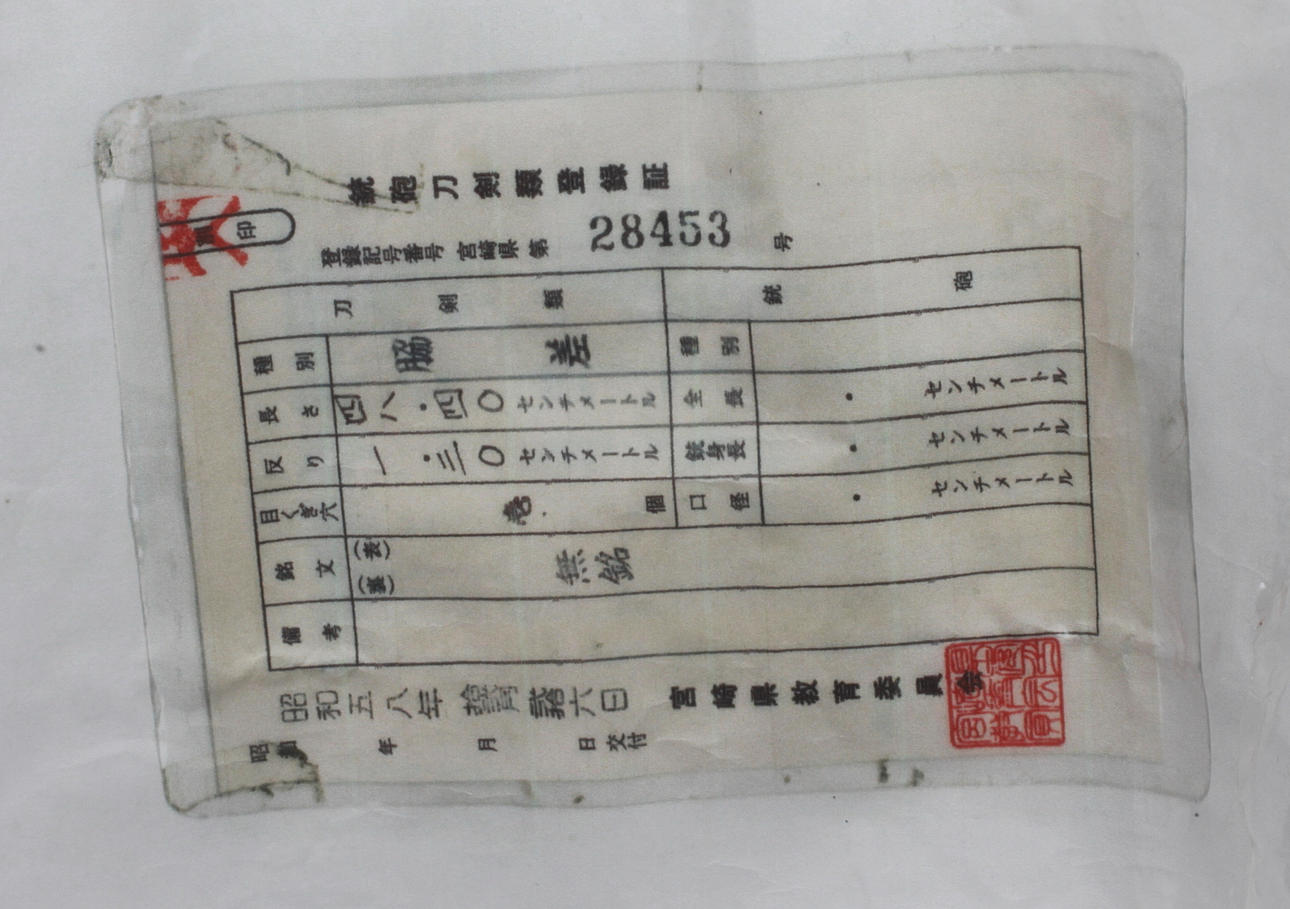 銃砲刀剣類登録証
登録記号番号 宮崎県 第 28453 号
印
刀剣類
種別 脇差
長さ 四八・四〇 センチメートル
反り 一・三〇 センチメートル
目くぎ穴 壱 個
銃砲
種別
全長 ・ センチメートル
銃身長 ・ センチメートル
口径 ・ センチメートル
銘文 (表) 無銘
(裏)
備考
昭和五八年 月 六日
昭和 年 月 日交付
宮崎県教育委員会